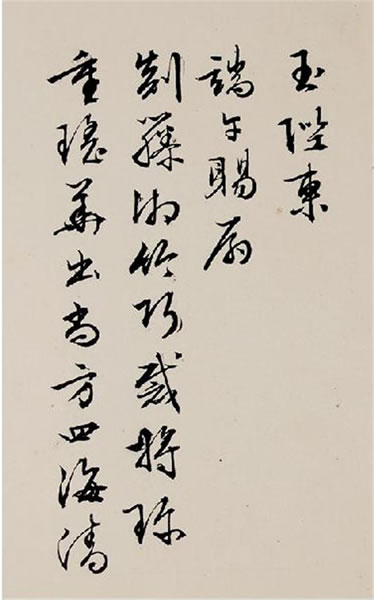 玉陛東
端午賜扇
剡藤湘竹巧裁將珍
重瑤華出尚方四海清